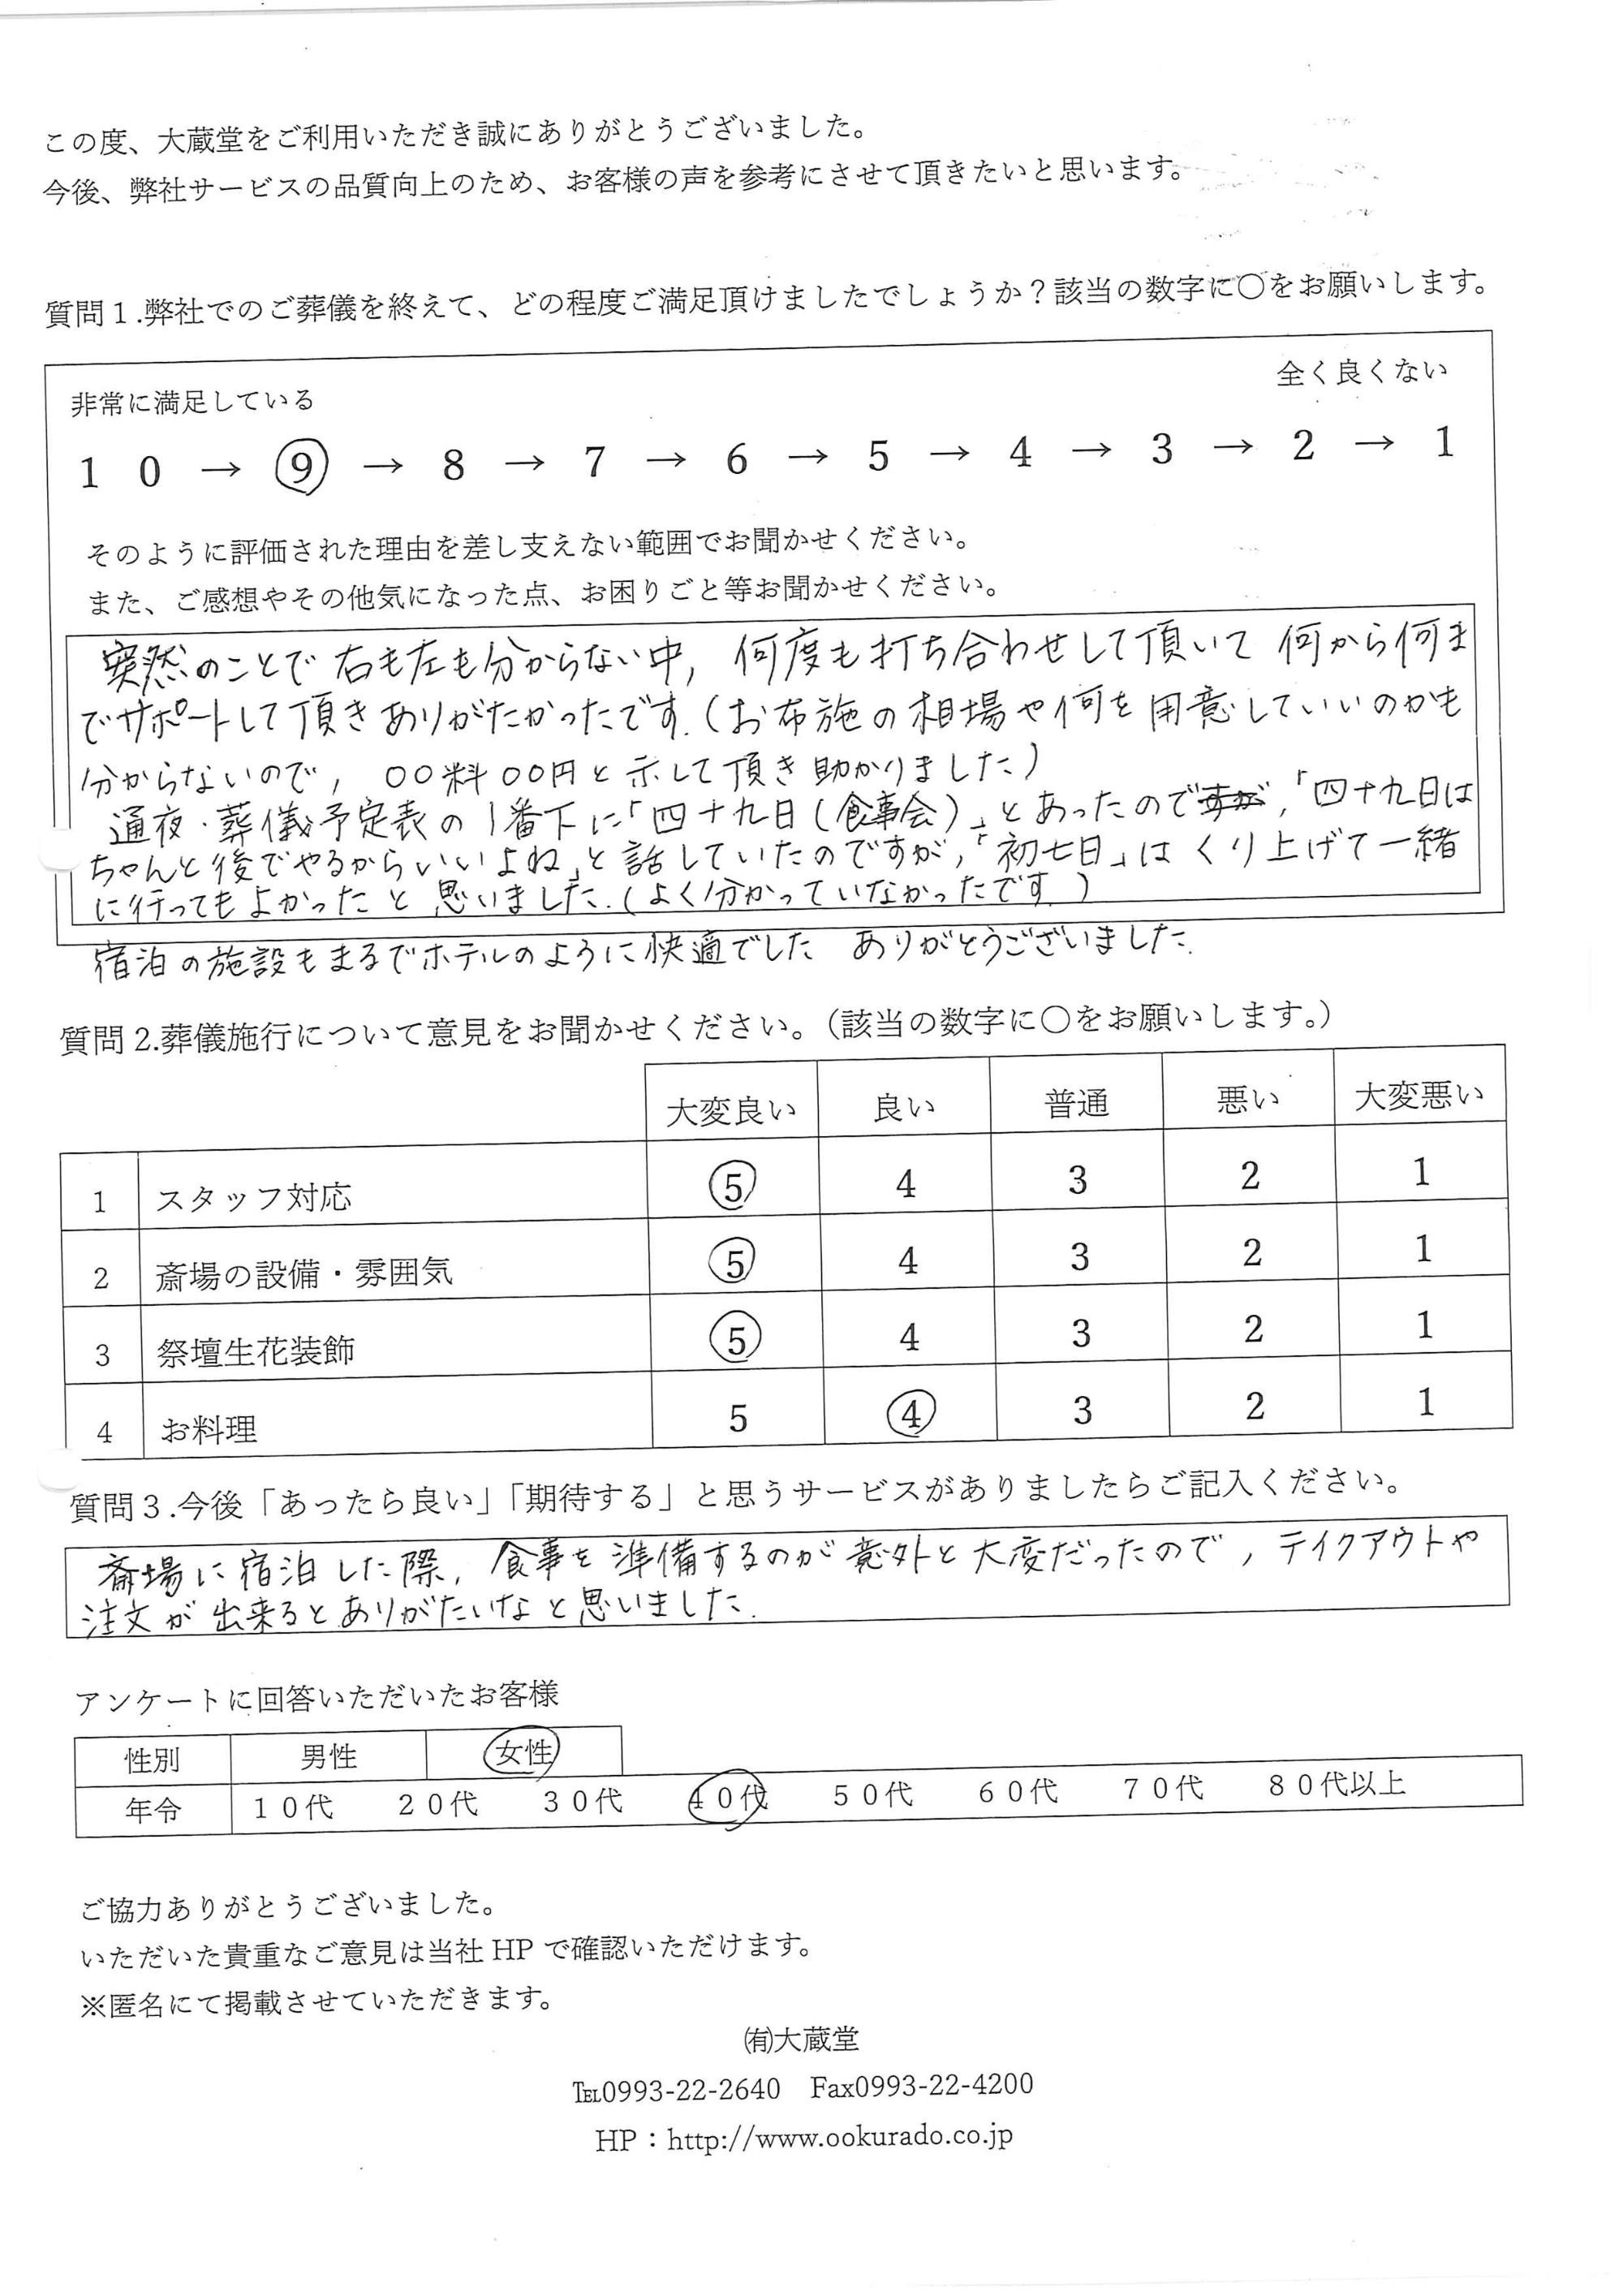 この度、大蔵堂をご利用いただき誠にありがとうございました。
今後、弊社サービスの品質向上のため、お客様の声を参考にさせて頂きたいと思います。
質問１.弊社でのご葬儀を終えて、どの程度ご満足頂けましたでしょうか？該当の数字に〇をお願いします。
非常に満足している 全く良くない
１０ → ９ → ８ → ７ → ６ → ５ → ４ → ３ → ２ → １
そのように評価された理由を差し支えない範囲でお聞かせください。
また、ご感想やその他気になった点、お困りごと等お聞かせください。
突然のことで右も左も分からない中, 何度も打ち合わせして頂いて 何から何ま
でサポートして頂きありがたかったです.(お布施の相場や何を用意していいのかも
分からないので, 〇〇料〇〇円と示して頂き助かりました)
通夜・葬儀予定表の１番下に「四十九日(食事会)」とあったのですが,「四十九日は
ちゃんと後でやるからいいよね」と話していたのですが,「初七日」はくり上げて一緒
に行ってもよかったと思いました.(よく分かっていなかったです.)
宿泊の施設もまるでホテルのように快適でした ありがとうございました.
質問２.葬儀施行について意見をお聞かせください。（該当の数字に〇をお願いします。）
大変良い 良い 普通 悪い 大変悪い
1 スタッフ対応 5 4 3 2 1
2 斎場の設備・雰囲気 5 4 3 2 1
3 祭壇生花装飾 5 4 3 2 1
4 お料理 5 4 3 2 1
質問３.今後「あったら良い」「期待する」と思うサービスがありましたらご記入ください。
斎場に宿泊した際, 食事を準備するのが意外と大変だったので, テイクアウトや
注文が出来るとありがたいなと思いました.
アンケートに回答いただいたお客様
性別 男性 女性
年令 １０代 ２０代 ３０代 ４０代 ５０代 ６０代 ７０代 ８０代以上
ご協力ありがとうございました。
いただいた貴重なご意見は当社 HP で確認いただけます。
※匿名にて掲載させていただきます。
㈲大蔵堂
℡0993-22-2640 Fax0993-22-4200
HP：http://www.ookurado.co.jp